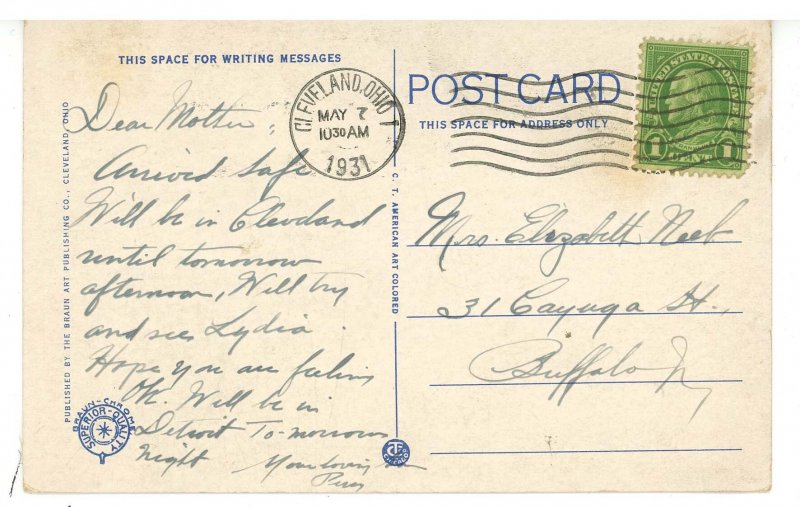 THIS SPACE FOR WRITING MESSAGES
Dear Mother,
Arrived safe
Will be in Cleveland
until tomorrow
afternoon, Will try
and see Lydia.
Hope you are feeling
OK. Will be in
Detroit To-morrow
night
Your loving son
Percy
PUBLISHED BY THE BRAUN ART PUBLISHING CO., CLEVELAND, OHIO
BRAUN-CHROME
SUPERIOR-QUALITY
C. T. AMERICAN ART COLORED
CLEVELAND, OHIO
MAY 7
10 30 AM
1931
POST CARD
THIS SPACE FOR ADDRESS ONLY
UNITED STATES POSTAGE
1 1
CENT
Mrs. Elizabeth Neeb
31 Cayuga St.,
Buffalo Ny
CHICAGO